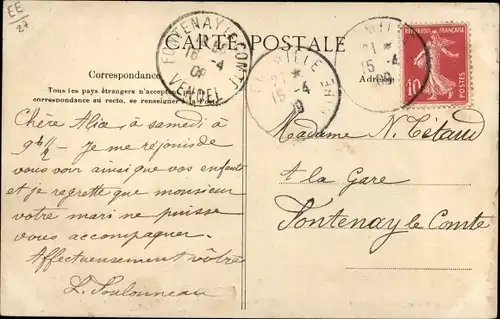 EE
27
CARTE POSTALE
Correspondance
Adresse
Tous les pays étrangers n'acceptent pas la
correspondance au recto, se renseigner à la Poste
FONTENAY-LE-COMTE
16 -4
09
VENDÉE
21 *
15 -4
09
21 *
15 -4
09
REPUBLIQUE FRANÇAISE
10
POSTES
Chère Alia, à samedi à
9h 1/2 - Je me réjouis de
vous voir ainsi que vos enfants
et je regrette que monsieur
votre mari ne puisse
vous accompagner.
Affectueusement vôtre
Madame N. Tétaud
à la Gare
Fontenay le Comte